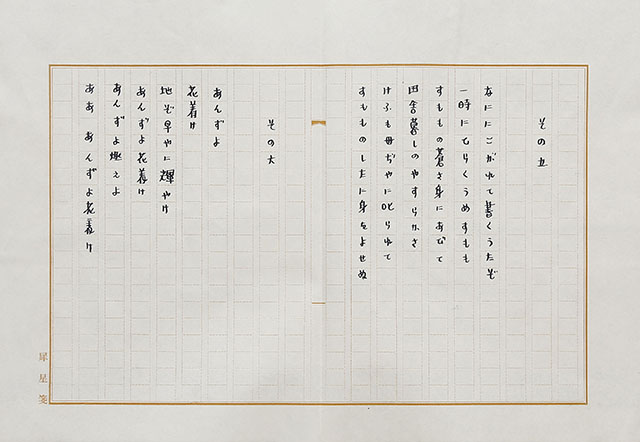 その五
なににこがれて書くうたぞ
一時にひらくうめすもも
すももの蒼さ身にあびて
田舎暮しのやすらかさ
けふも母ぢやに叱られて
すもものしたに身をよせぬ
その六
あんずよ
花着け
地ぞ早やに輝やけ
あんずよ花着け
あんずよ燃えよ
ああ あんずよ花着け
犀星箋